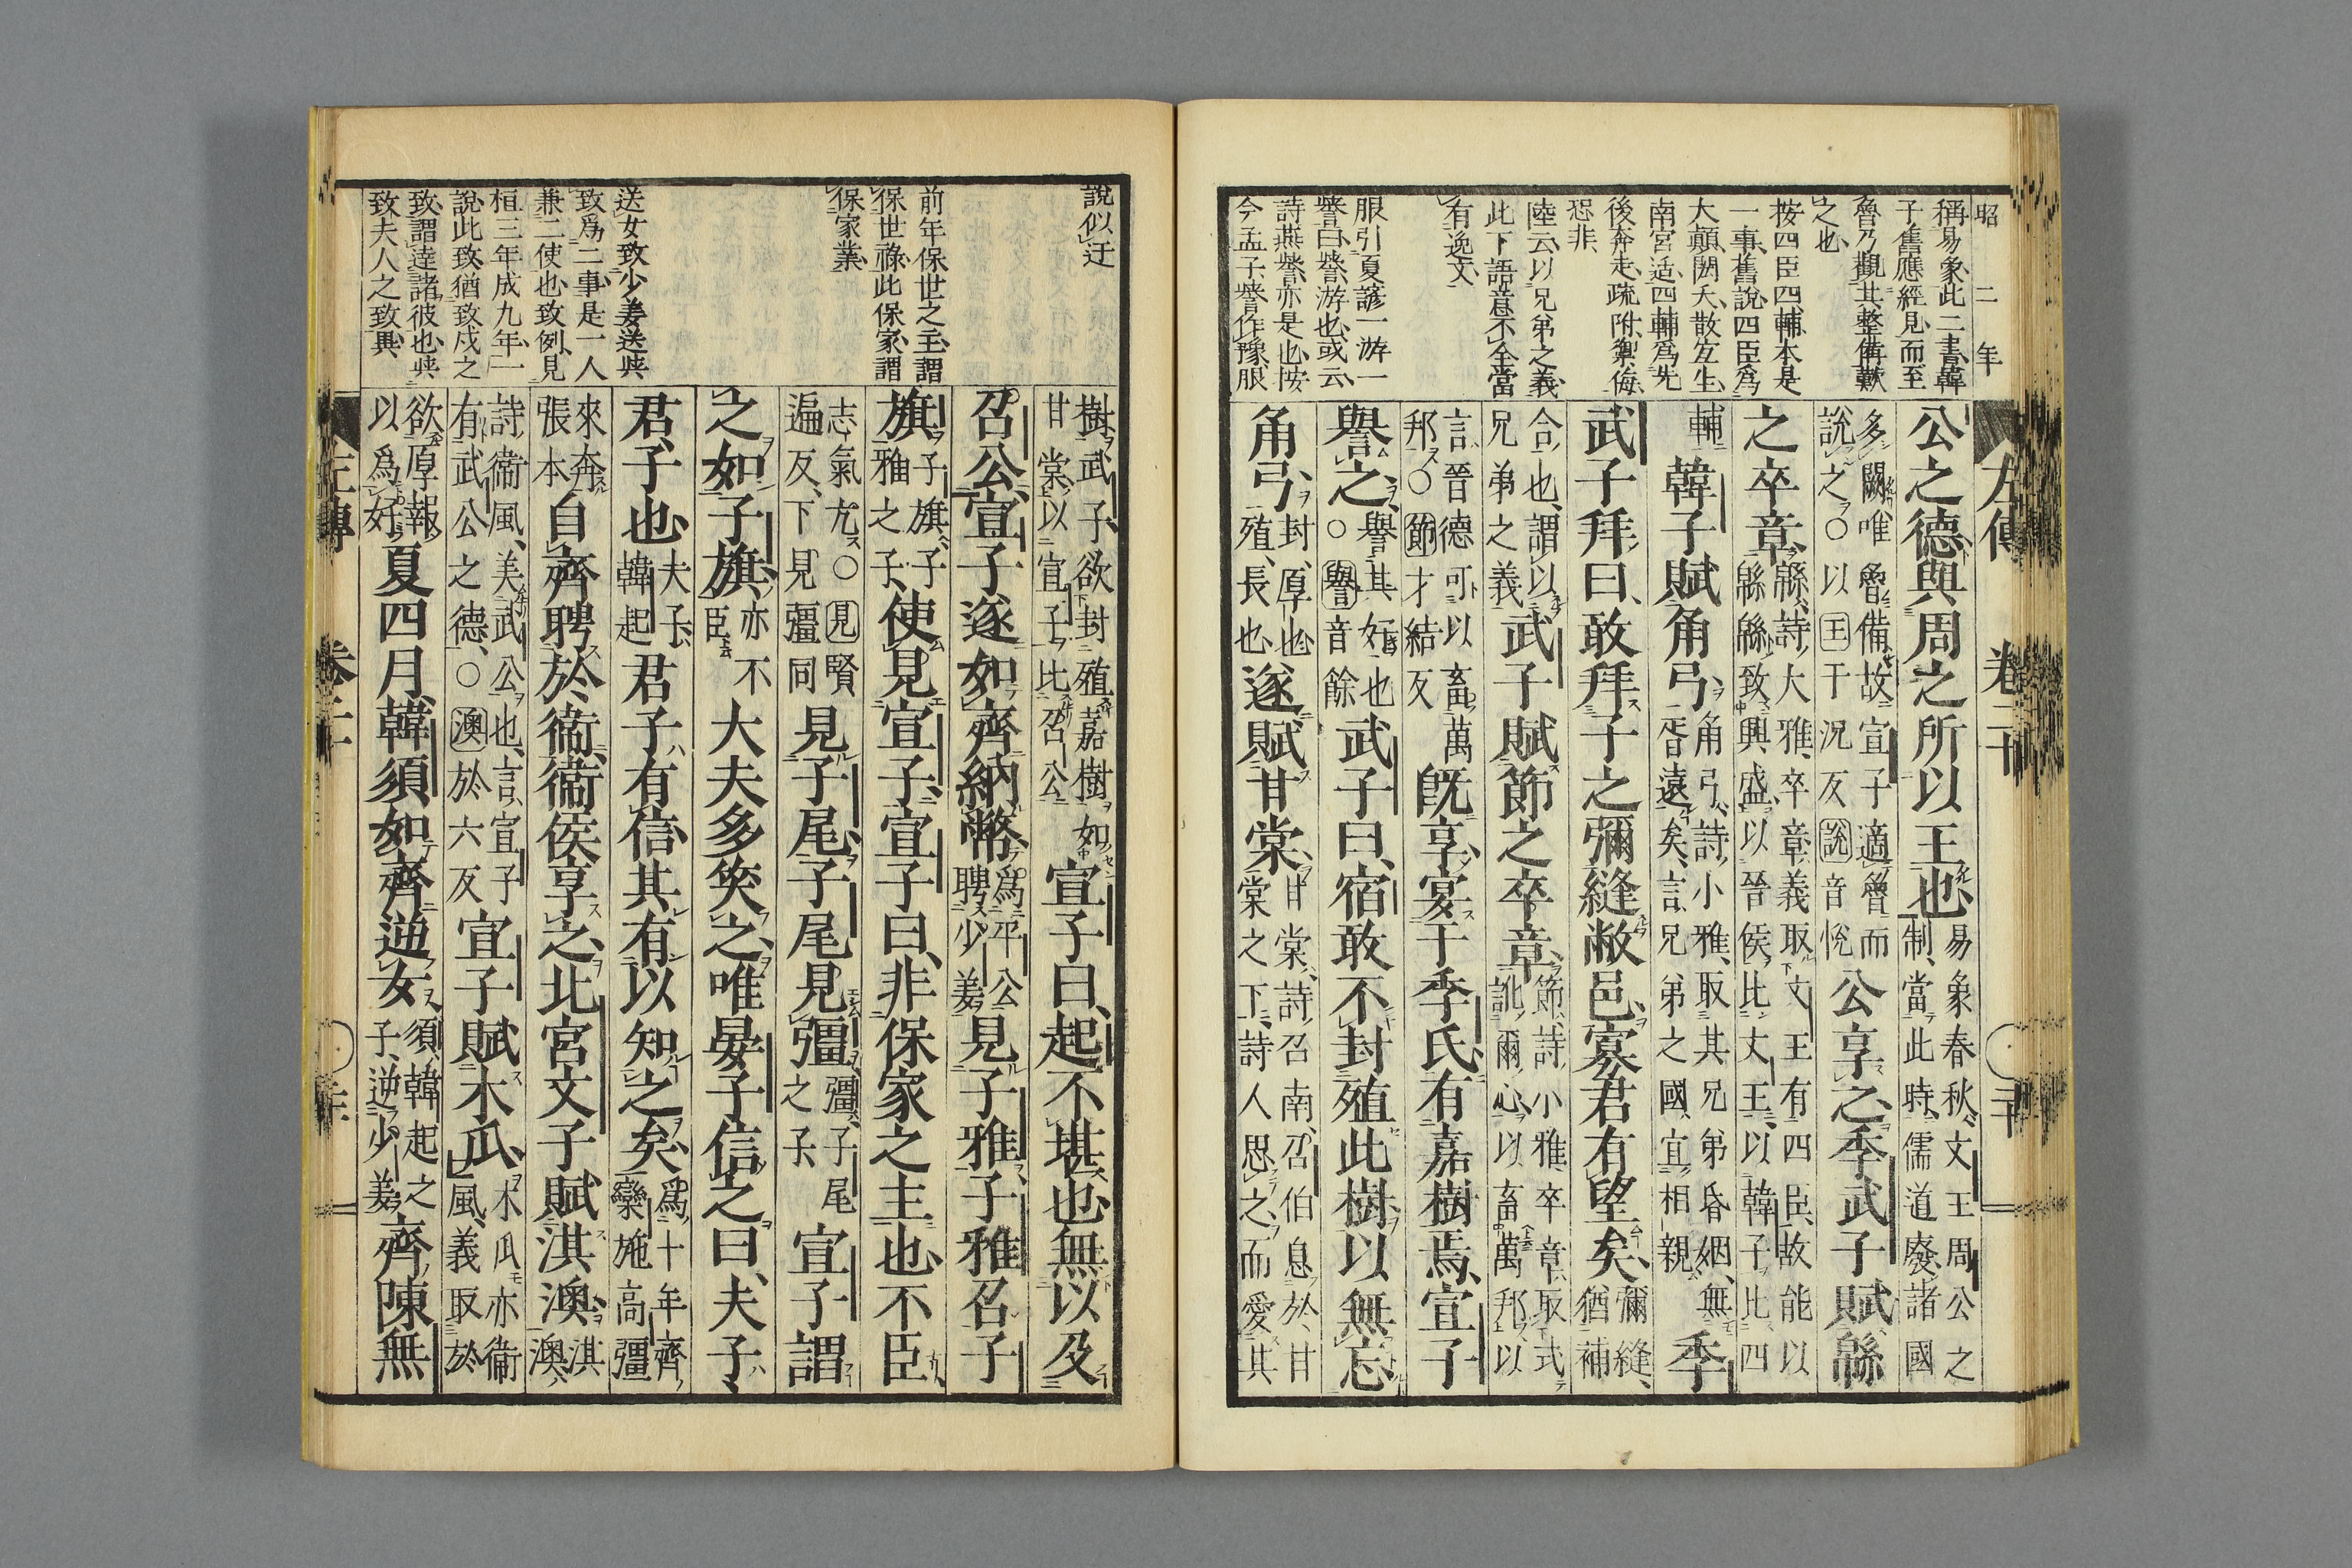 昭二年
左傳 卷二十
稱易象此二書韓
子舊應經見而至
魯乃觀其整備歎
之也
按四臣四輔本是
一事舊說四臣爲
大顛閎夭散宜生
南宮适四輔爲先
後奔走疏附禦侮
恐非
陸云以兄弟之義
此下語意不全當
有逸文
服引夏諺一游一
譽曰譽游也或云
詩燕譽亦是也按
今孟子譽作豫服
公之德與周之所以王也易象春秋文王周公之制當此時儒道廢諸國
多闕唯魯備故宣子適魯而說之○以王于況反說音悅公享之季武子賦緜
之卒章緜詩大雅卒章義取文王有四臣故能以緜緜致興盛以晉侯比文王以韓子比四
輔韓子賦角弓角弓詩小雅取其兄弟昏姻無胥遠矣言兄弟之國宜相親季
武子拜曰敢拜子之彌縫敝邑寡君有望矣彌縫猶補
合也謂以兄弟之義武子賦節之卒章節詩小雅卒章取式訛爾心以畜萬邦以
言晉德可以畜萬邦○節才結反旣享宴于季氏有嘉樹焉宣子
譽之譽其好也○譽音餘武子曰宿敢不封殖此樹以無忘
角弓封厚也殖長也遂賦甘棠甘棠詩召南召伯息於甘棠之下詩人思之而愛其
說似迂
前年保世之主謂
保世祿此保家謂
保家業
送女致少姜送與
致爲二事是一人
兼二使也致例見
桓三年成九年一
說此致猶致戍之
致謂達諸彼也與
致夫人之致異
樹武子欲封殖嘉樹如甘棠以宣子比召公宣子曰起不堪也無以及
召公宣子遂如齊納幣爲平公聘少姜見子雅子雅召子
旗子旗子雅之子使見宣子宣子曰非保家之主也不臣
志氣亢○見賢遍反下見彊同見子尾子尾見彊彊子尾之子宣子謂
之如子旗亦不臣大夫多笑之唯晏子信之曰夫子
君子也夫子韓起君子有信其有以知之矣爲十年齊欒施高彊
來奔張本自齊聘於衞衞侯享之北宮文子賦淇澳淇澳
詩衞風美武公也言宣子有武公之德○澳於六反宣子賦木瓜木瓜亦衞風義取於
欲厚報以爲好夏四月韓須如齊逆女須韓起之子逆少姜齊陳無
左傳 卷二十